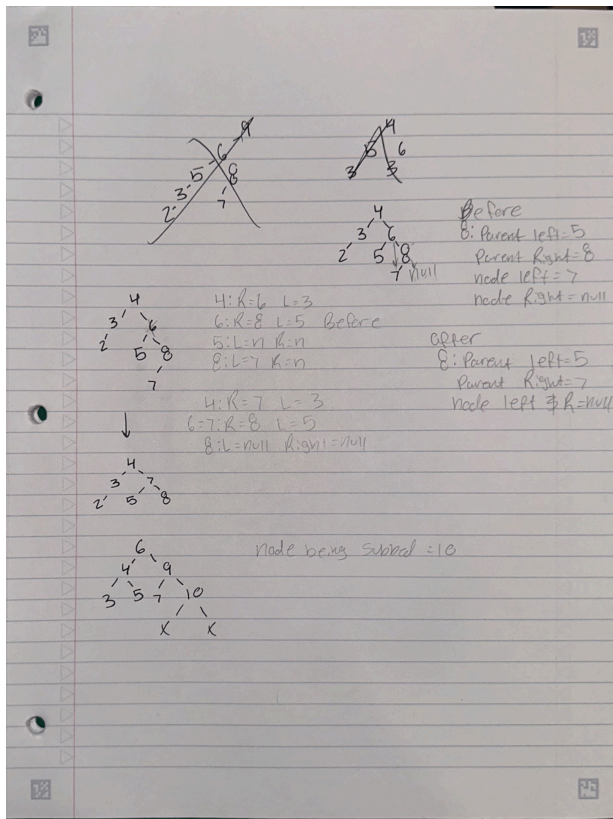 9
6
5 8
3 7
2
4
5 6
3 3
4
3 6
2 5 8
7 null
Before
8: Parent left=5
Parent Right=8
node left=7
node Right=null
4
3 6
2 5 8
7
4:R=6 L=3
6:R=8 L=5 Before
5:L=n R=n
8:L=7 R=n
after
8: Parent left=5
Parent Right=7
node left & R=null
4:R=7 L=3
6=7:R=8 L=5
8:L=null Right=null
4
3 7
2 5 8
6
4 9
3 5 7 10
x x
node being subbed =10